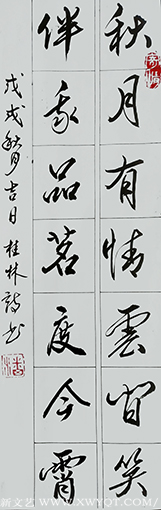 秋月有情雲间笑
伴我品茗度今霄
戊戌秋月吉日桂林
新文艺 WWW.XWYOT.COM